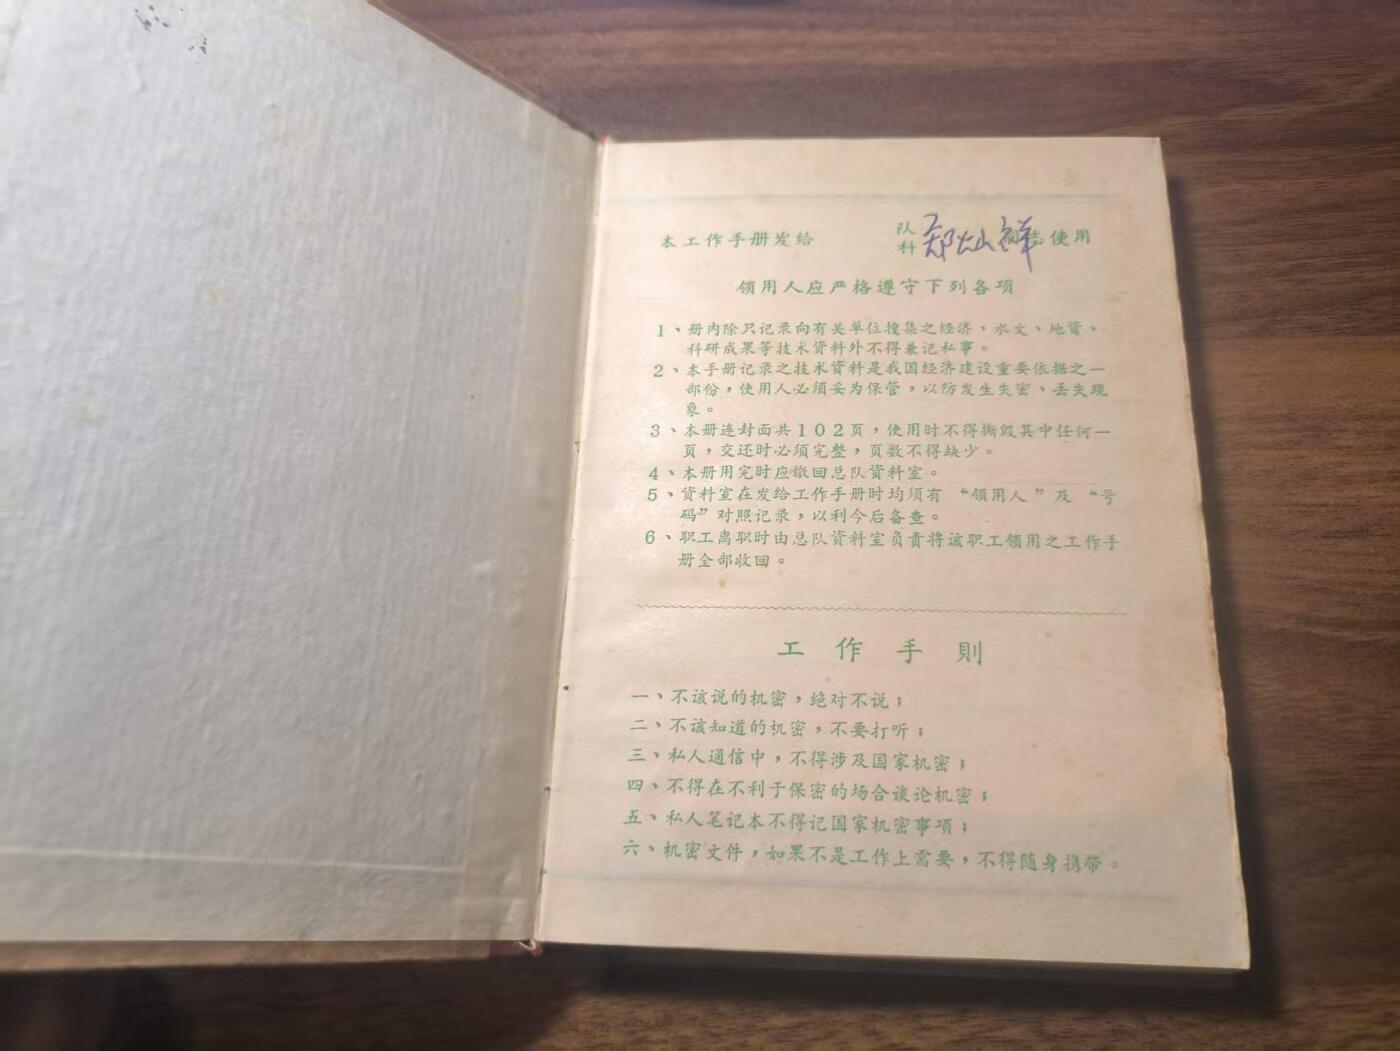 本工作手册发给 队科 郑灿祥 同志使用
领用人应严格遵守下列各项
1、册内除只记录向有关单位搜集之经济、水文、地資、
科研成果等技术資料外不得兼记私事。
2、本手册记录之技术資料是我国经济建设重要依据之一
部份，使用人必须妥为保管，以防发生失密、丢失现
象。
3、本册连封面共102页，使用时不得撕毁其中任何一
页，交还时必须完整，页数不得缺少。
4、本册用完时应缴回总队資料室。
5、資料室在发给工作手册时均须有“领用人”及“号
码”对照记录，以利今后备查。
6、职工离职时由总队資料室负责将该职工领用之工作手
册全部收回。
工作手則
一、不该说的机密，绝对不说；
二、不该知道的机密，不要打听；
三、私人通信中，不得涉及国家机密；
四、不得在不利于保密的场合谈论机密；
五、私人笔记本不得记国家机密事项；
六、机密文件，如果不是工作上需要，不得随身携带。